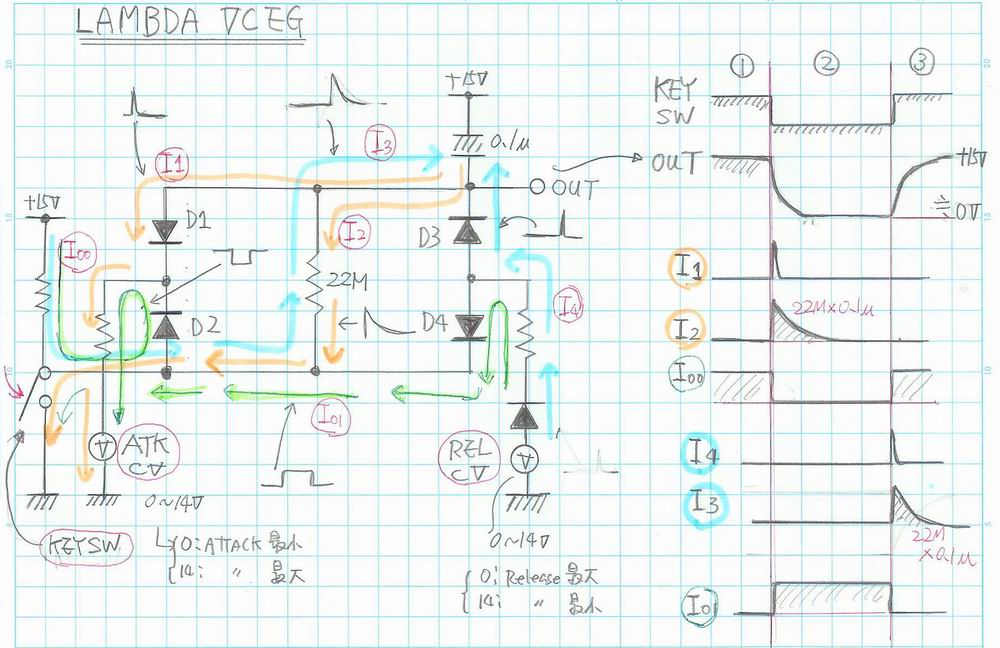 LAMBDA VCEG
① ② ③
+15V
KEY
SW
0.1μ
OUT
OUT
+15V
≒0V
I3
I1
+15V
I00
D1
I2
D3
22M
I4
D2
D4
I01
ATK
CV
REL
CV
0~14V
0~14V
KEYSW
0: ATTACK 最小
14: 〃 最大
0: Release 最大
14: 〃 最小
I1
I2
22M×0.1μ
I00
I4
I3
22M
×0.1μ
I01
20
15
10
5
20
15
10
5